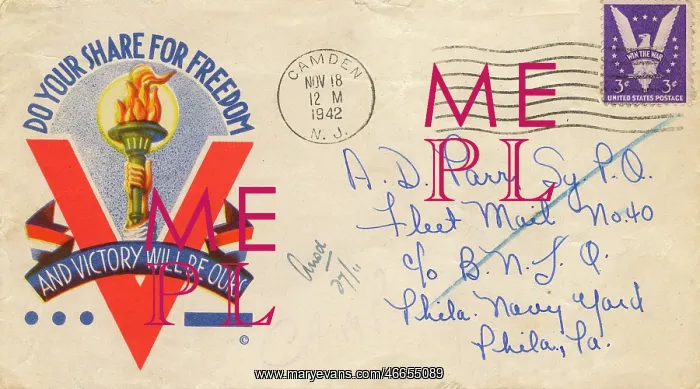 DO YOUR SHARE FOR FREEDOM
AND VICTORY WILL BE OURS
©
CAMDEN
NOV 18
12 M
1942
N. J.
WIN THE WAR
3¢ 3¢
UNITED STATES POSTAGE
A. D. Parr, Sy. P.O.
Fleet Mail No. 40
c/o B. N. L. O.
Phila. Navy Yard
Phila., Pa.
27/11
ME
PL
ME
PL
www.maryevans.com/46655089